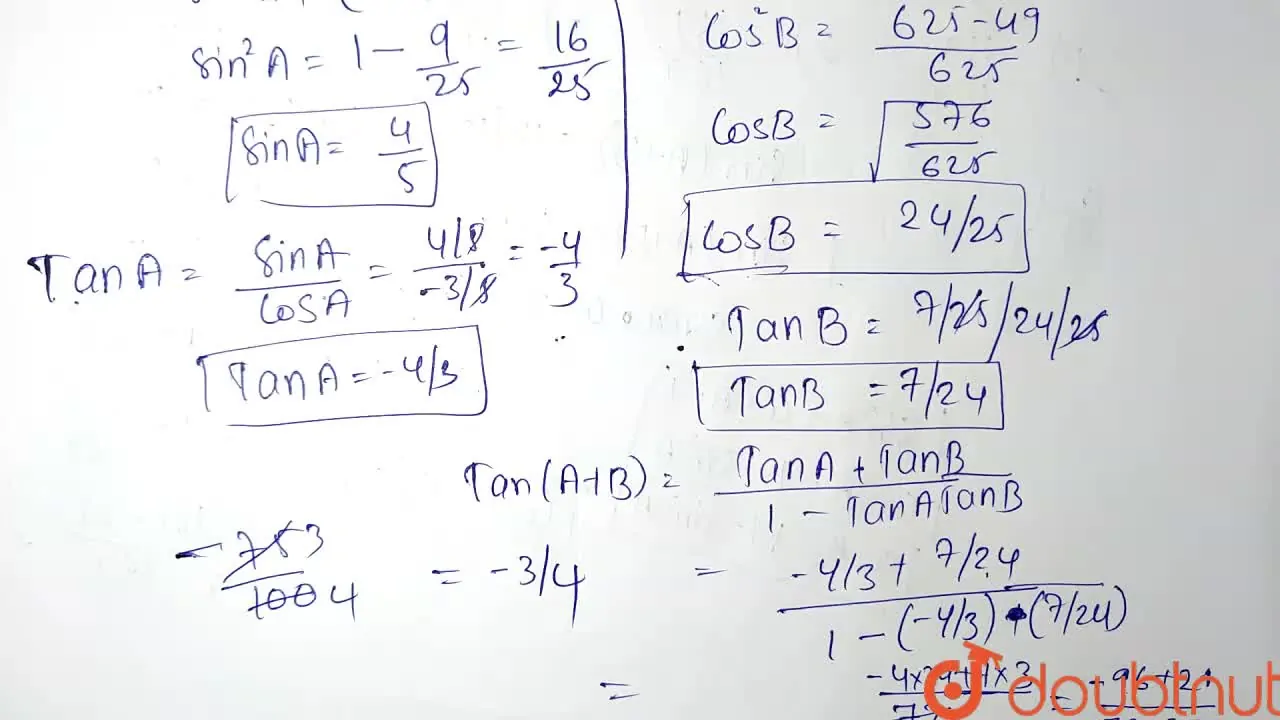 sin²A = 1 - 9/25 = 16/25
sinA = 4/5
TanA = sinA/cosA = 4/5/-3/5 = -4/3
TanA = -4/3
cos²B = 625-49/625
cosB = √576/625
cosB = 24/25
TanB = 7/25/24/25
TanB = 7/24
Tan(A+B) = TanA + TanB/1 - TanATanB
= -4/3 + 7/24/1 - (-4/3) (7/24)
- 75 3/100 4 = -3/4
=
doubtnut